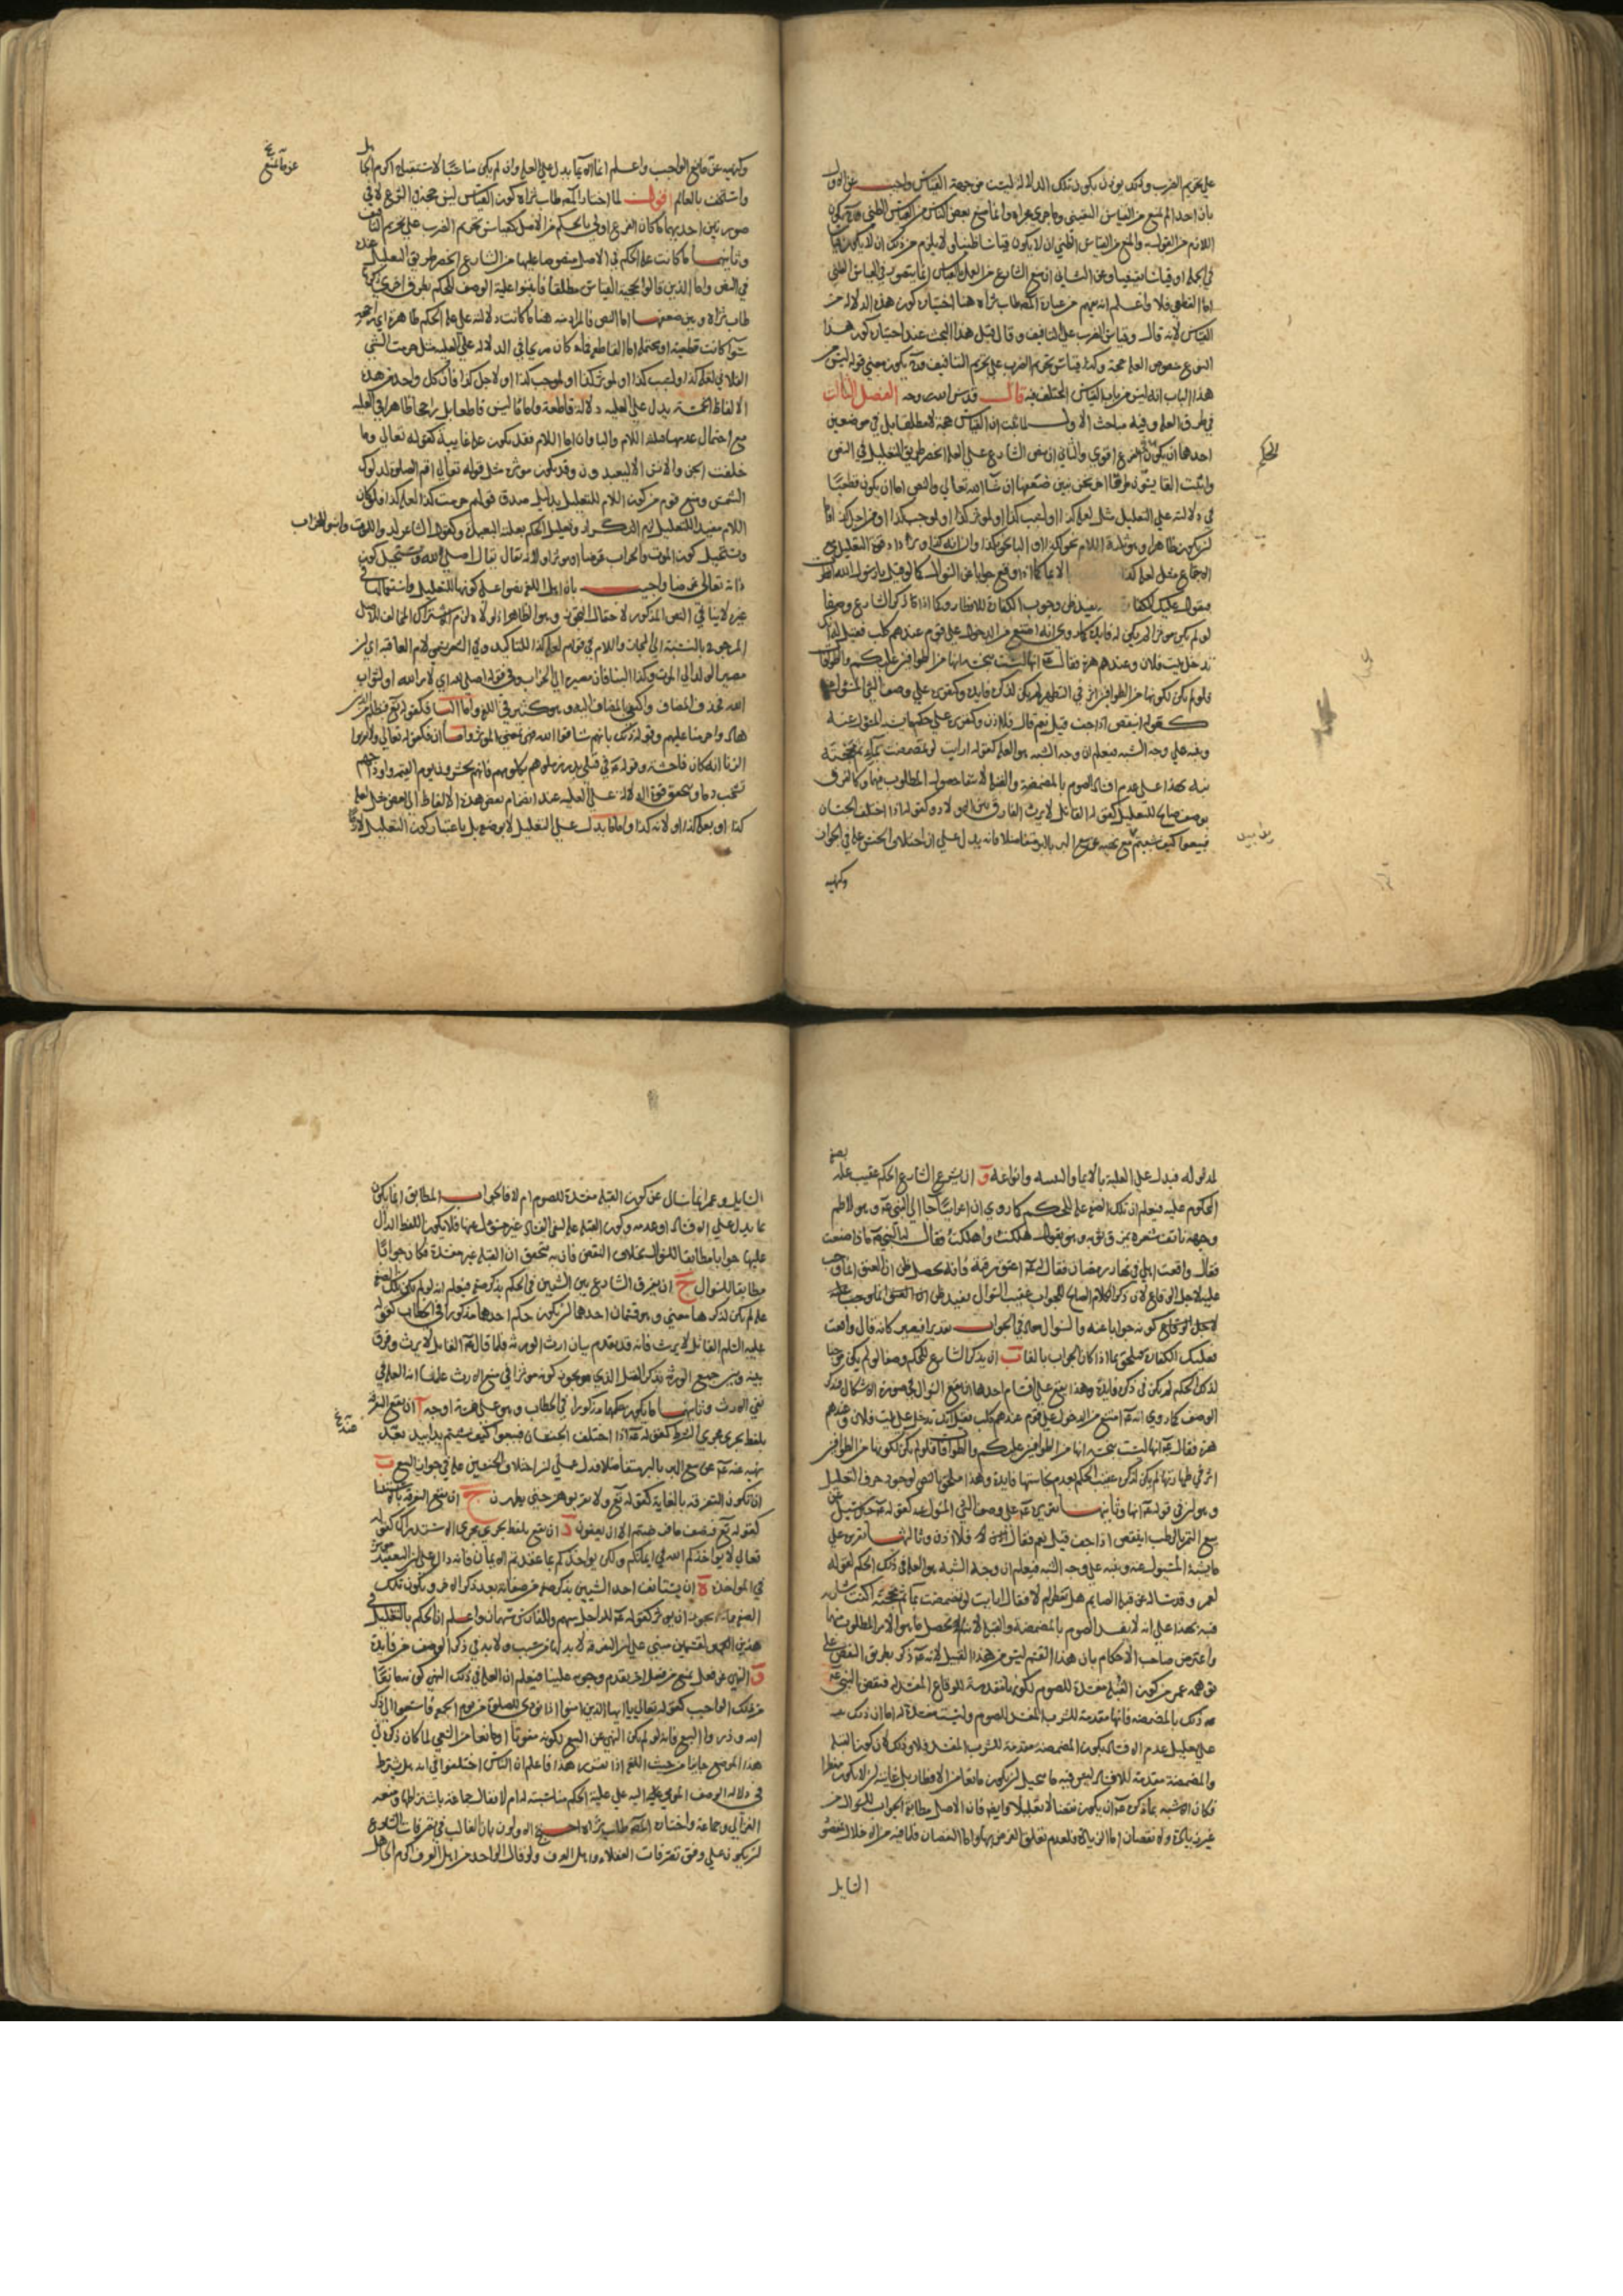 على تحريم الضرب وكذلك يجوز ان يكون تلك الدلالة ليست من جهة القياس واجيب عن الاول
بان احدا لم يمنع من القياس اليقيني وما جرى مجراه وانما منع بعض الناس من القياس الظني
اللازم من القول به والمنع من القياس الظني ان لا يكون قياسا ظنيا ولا يلزم من ذلك ان لا يكون قياسا
في الجملة او قياسا يقينيا وعن الثاني ان منع الشارع من العمل بالقياس انما يتصور في القياس الظني
اما القطعي فلا واعلم انه يفهم من عبارة المصنف طاب ثراه هنا اختياره كون هذه الدلالة من
القياس لانه قال وقياس الضرب على التافيف وقال قبل هذا البحث عند اختياره كون هذا
النوع منصوص العلة حجة وكذا قياس تحريم الضرب على تحريم التافيف وقد يكون معنى قوله ليس من
هذا الباب انه ليس من باب القياس المختلف فيه قال قدس الله روحه الفصل الثالث
في طرق العلة وفيه مباحث الاول لما ثبت ان القياس حجة لا مطلقا بل في موضعين
احدهما ان يكون الفرع اقوى والثاني ان ينص الشارع على العلة انحصر طريق التعليل في النص
الحكم
واثبت القايسون طرقا اخر نحن نبين ضعفها ان شا الله تعالى والنص اما ان يكون قطعيا
في دلالته على التعليل مثل لعلة كذا او لسبب كذا او لموثر كذا او لموجب كذا او من اجل كذا
لن يكون ظاهرا وهو ثلثة اللام نحو لكذا او البا نحو بكذا وان انه كذا
الاجماع مثل لعلة كذا الايما كما اذا وقع جوابا عن السوال كما لو قيل يا رسول الله افطرت
فيقول عليك الكفارة يفيد ظن وجوب الكفارة للافطار وكما اذا ذكر الشارع وصفا
لو لم يكن موثرا لم يكن له فايدة كما روى انه امتنع من الدخول على قوم عندهم كلب فقيل له
تدخل بيت فلان وعندهم هرة فقال انها ليست بنجسة انها من الطوافين عليكم والطوافات
فلو لم يكن لكونها من الطوافين اثر في التطهير لم يكن لذكره فايدة وكتقريره على وصف الشي المسئول عنه
كقوله اينقص اذا جف قيل نعم قال فلا اذن وكتقريره على حكم ما يشبه المسؤل عنه
وينبه على وجه الشبه فيعلم ان وجه الشبه هو العلة كقوله ارايت لو تمضمضت بماء ثم مججته
نبه بهذا على عدم افساد الصوم بالمضمضة والقبلة لانتفا حصول المطلوب منهما وكالفرق
بوصف صالح للتعليل كقوله القاتل لا يرث الفارق بين الاولاد وكقوله اذا اختلف الجنسان
فبيعوا كيف شيتم مع نهيه عن بيع البر بالبر متفاضلا فانه يدل على ان اختلاف الجنس علة في الجواز
يدا بيد
وكنهيه
وكنهيه عن مانع الواجب واعلم ان الايما يدل على العلة وان لم يكن مناسبا لاستقباح اكرم الجاهل
عن ما يمنع
واستخف بالعالم اقول لما اختار المصنف طاب ثراه كون القياس ليس بحجة في الشرع الا في
صورتين احديهما ما كان الفرع اولى بالحكم من الاصل كقياس تحريم الضرب على تحريم التافيف
وثانيهما ما كانت علة الحكم في الاصل منصوصا عليها من الشارع انحصر طريق التعليل عنده
في النص واما الذين قالوا بحجية القياس مطلقا فاثبتوا علية الوصف للحكم بطرق اخرى ذكرها
طاب ثراه وبين ضعفها اما النص فالمراد منه هنا ما كانت دلالته على علة الحكم ظاهرة اي راجحة
سوا كانت قطعية او محتملة اما القاطع فانه كان صريحا في الدلالة على العلية مثل حرمت الشي
الفلاني لعلة كذا او لسبب كذا او لموثر كذا او لموجب كذا او لاجل كذا فان كل واحد من هذه
الالفاظ الخمسة يدل على العلية دلالة قاطعة واما ما ليس قاطعا بل راجحا ظاهرا في العلية
مع احتمال عدمها فثلثة اللام والبا وان اما اللام فقد يكون علة غايبة كقوله تعالى وما
خلقت الجن والانس الا ليعبدون وقد يكون موثرة مثل قوله تعالى اقم الصلوة لدلوك
الشمس ومنع قوم من كون اللام للتعليل بدليل صدق قولهم حرمت كذا لعلة كذا فلو كان
اللام مفيدا للتعليل لزم التكرار وتعليل الحكم بعلة البعيدة وكقول الشاعر لدوا للموت وابنوا للخراب
ويستحيل كون الموت والخراب غرضا او موثرا ولانه يقال اصلي لله ويستحيل كون
ذاته تعالى غرضا واجيب بان اهل اللغة نصوا على كونها للتعليل واستعمالها في
غيره لا ينافي النص المذكور لاحتمال التجوز وهو الظاهر اذ لولاه لزم الاشتراك المخالف للاصل
المرجوح بالنسبة الى المجاز واللام في قولهم لعلة كذا للتاكيد وفي الشعر تسمى لام العاقبة اي لن
مصير الولد الى الموت وكذا البنا فان مصيره الى الخراب وفي قوله اصلي لله اي لامر الله او لثواب
الله فحذف المضاف واكتفى بالمضاف اليه وهو كثير في اللغة واما البا فكقوله تع فبظلم من الذين
هادوا حرمنا عليهم وقوله ذلك بانهم شاقوا الله فهي تعني الموثر واما ان فكقوله تعالى ولا تقربوا
الزنا انه كان فاحشة وقوله في قتلى بدر زملوهم بكلومهم فانهم يحشرون يوم القيمة واوداجهم
تشخب دما ويتحقق قوة الدلالة على العلية عند انضمام بعض هذه الالفاظ الى البعض مثل لعلة
كذا او بعلة كذا او لانه كذا واما ما يدل على التعليل لا بوضعه بل باعتبار كون التعليل لازما
لمدلوله فيدل على العلية بالايما والتنبيه وانواعه و ان يشرع الشارع الحكم عقيب علمه بصفة
المحكوم عليه فيعلم ان تلك الصفة علة للحكم كما روى ان اعرابيا جا الى النبي وهو يلاطم
وجهه وينتف شعره ويمزق ثوبه وهو يقول هلكت واهلكت فقال له النبي ماذا صنعت
فقال واقعت اهلي في نهار رمضان فقال اعتق رقبة فانه يحصل ظن ان العتق انما وجب
عليه لاجل الوقاع لان ذكر الكلام الصالح للجواب عقيب السوال يفيد ظن
كونه جوابا عنه والسوال معاد في الجواب تقديرا فيصير كانه قال واقعت
فعليك الكفارة فيلحق بما اذا كان الجواب بالفا ب ان يذكر الشارع للحكم وصفا لو لم يكن موجبا
لذلك الحكم لم يكن في ذكره فايدة وهذا يقع على اقسام احدها ان يقع السوال في صورة الاشكال فيذكر
الوصف كما روى انه امتنع من الدخول على قوم عندهم كلب فقيل انك تدخل على بيت فلان وعندهم
هرة فقال انها ليست بنجسة انها من الطوافين عليكم والطوافات فلو لم يكن لكونها من الطوافين
اثر في طهارتها لم يكن لذكره عقيب الحكم بعدم نجاستها فايدة وهذا ملحق بالنص لوجود حرف التعليل
وهو ان في قوله انها وثانيها تقريره على وصف الشي المسؤل عنه كقوله حين سئل عن
بيع التمر بالرطب اينقص اذا جف فقيل نعم فقال فلا اذن وثالثها تقريره على
ما يشبه المسئول عنه وينبه على وجه الشبه فيعلم ان وجه الشبه هو العلة في ذلك الحكم كقوله
لعمر وقد سأله عن قبلة الصايم هل تفطر ام لا فقال ارايت لو تمضمضت بماء ثم مججته اكنت شاربه
فنبه بهذا على انه لا يفسد الصوم بالمضمضة والقبلة لانه لم يحصل ما هو الامر المطلوب منهما
واعترض صاحب الاحكام بان هذا القسم ليس من هذا القبيل لانه ذكره بطريق النقض على
توهم عمر من كون القبلة مفسدة للصوم لكونها مقدمة للوقاع المفسد له فنقض النبي
ذلك بالمضمضة فانها مقدمة للشرب المفسد للصوم وليست مفسدة له اما ان ذلك
على تعليل عدم الافساد بكون المضمضة مقدمة للشرب المفسد فلا وذلك لان كون القبلة
والمضمضة مقدمة للافساد ليس فيه ما يتخيل لن يكون مانعا من الافطار بل غايته لن لا يكون مفطرا
فكان الاشبه بما ذكره ان يكون نقضا لا تعليلا وايضا فان الاصل مطابقة الجواب للسوال من
غير زيادة ولا نقصان اما الزيادة فلعدم تعلق الغرض بها واما النقصان فلما فيه من الاخلال بمقصود
السايل
السايل وعمر انما سال عن كون القبلة مفسدة للصوم ام لا فالجواب المطابق انما يكون
بما يدل على الافساد او عدمه وكون القبلة علة لنفي الفساد غير مسؤل عنها فلا يكون اللفظ الدال
عليها جوابا مطابقا للسوال بخلاف النقض فان به يتحقق ان القبلة غير مفسدة فكان جوابا
مطابقا للسوال ج ان يفرق الشارع بين الشيئين في الحكم بذكر صفة فيعلم انه لو لم يكن تلك الصفة
علة لم يكن لذكرها معنى وهو قسمان احدهما لن يكون حكم احدهما مذكورا في الخطاب كقوله
عليه السلم القاتل لا يرث فانه قد تقدم بيان ارث الورثة فلما قال القاتل لا يرث وفرق
بينه وبين جميع الورثة بذكر القتل الذي يجوز كونه موثرا في منع الارث علمنا انه العلة في
نفي الارث وثانيهما ما يكون حكمهما مذكورا في الخطاب وهو على خمسة اوجه ا ان يقع التفرقة
بلفظ يجري مجرى الشرط كقوله اذا اختلف الجنسان فبيعوا كيف شيتم يدا بيد بعد
نهيه عنه عن بيع البر بالبر متفاضلا فدل على لن اختلاف الجنسين علة في جواز البيع ب
ان تكون التفرقة بالغاية كقوله تع ولا تقربوهن حتى يطهرن ج ان يقع التفرقة بالاستثنا
كقوله تع فنصف ما فرضتم الا ان يعفون د ان يقع بلفظ يجري مجرى الاستدراك كقوله
تعالى لا يواخذكم الله باللغو في ايمانكم ولكن يواخذكم بما عقدتم الايمان فانه دال على لن التعقيد موثر
في المواخذة ه ان يستانف احد الشيئين بذكر صفة من صفاته بعد ذكر الاخر ويكون تلك
الصفة مما يجوز ان يوثر كقوله للراجل سهم وللفارس سهمان واعلم ان الحكم بالتعليل في
هذين القسمين مبني على لن التفرقة لا بد لها من سبب ولا بد في ذكر الوصف من فايدة
و النهي عن فعل يمنع من فعل اخر تقدم وجوبه علينا فيعلم ان العلة في ذلك النهي كونه مانعا
من ذلك الواجب كقوله تعالى يا ايها الذين امنوا اذا نودي للصلوة من يوم الجمعة فاسعوا الى ذكر
الله وذروا البيع فانه لو لم يكن النهي عن البيع لكونه مفوتا او مانعا من السعي لما كان ذكره في
هذا الموضع جايزا من حيث اللغة اذا تقرر هذا فاعلم ان الناس اختلفوا في انه هل يشترط
في دلالة الوصف المومى اليه على علية الحكم مناسبته له ام لا فقال جماعة باشتراطها ومنعه
الغزالي وجماعة واختاره المصنف طاب ثراه احتج الاولون بان الغالب في تصرفات الشارع
لن يكون على وفق تصرفات العقلاء واهل العرف ولو قال الواحد من اهل العرف اكرم الجاهل